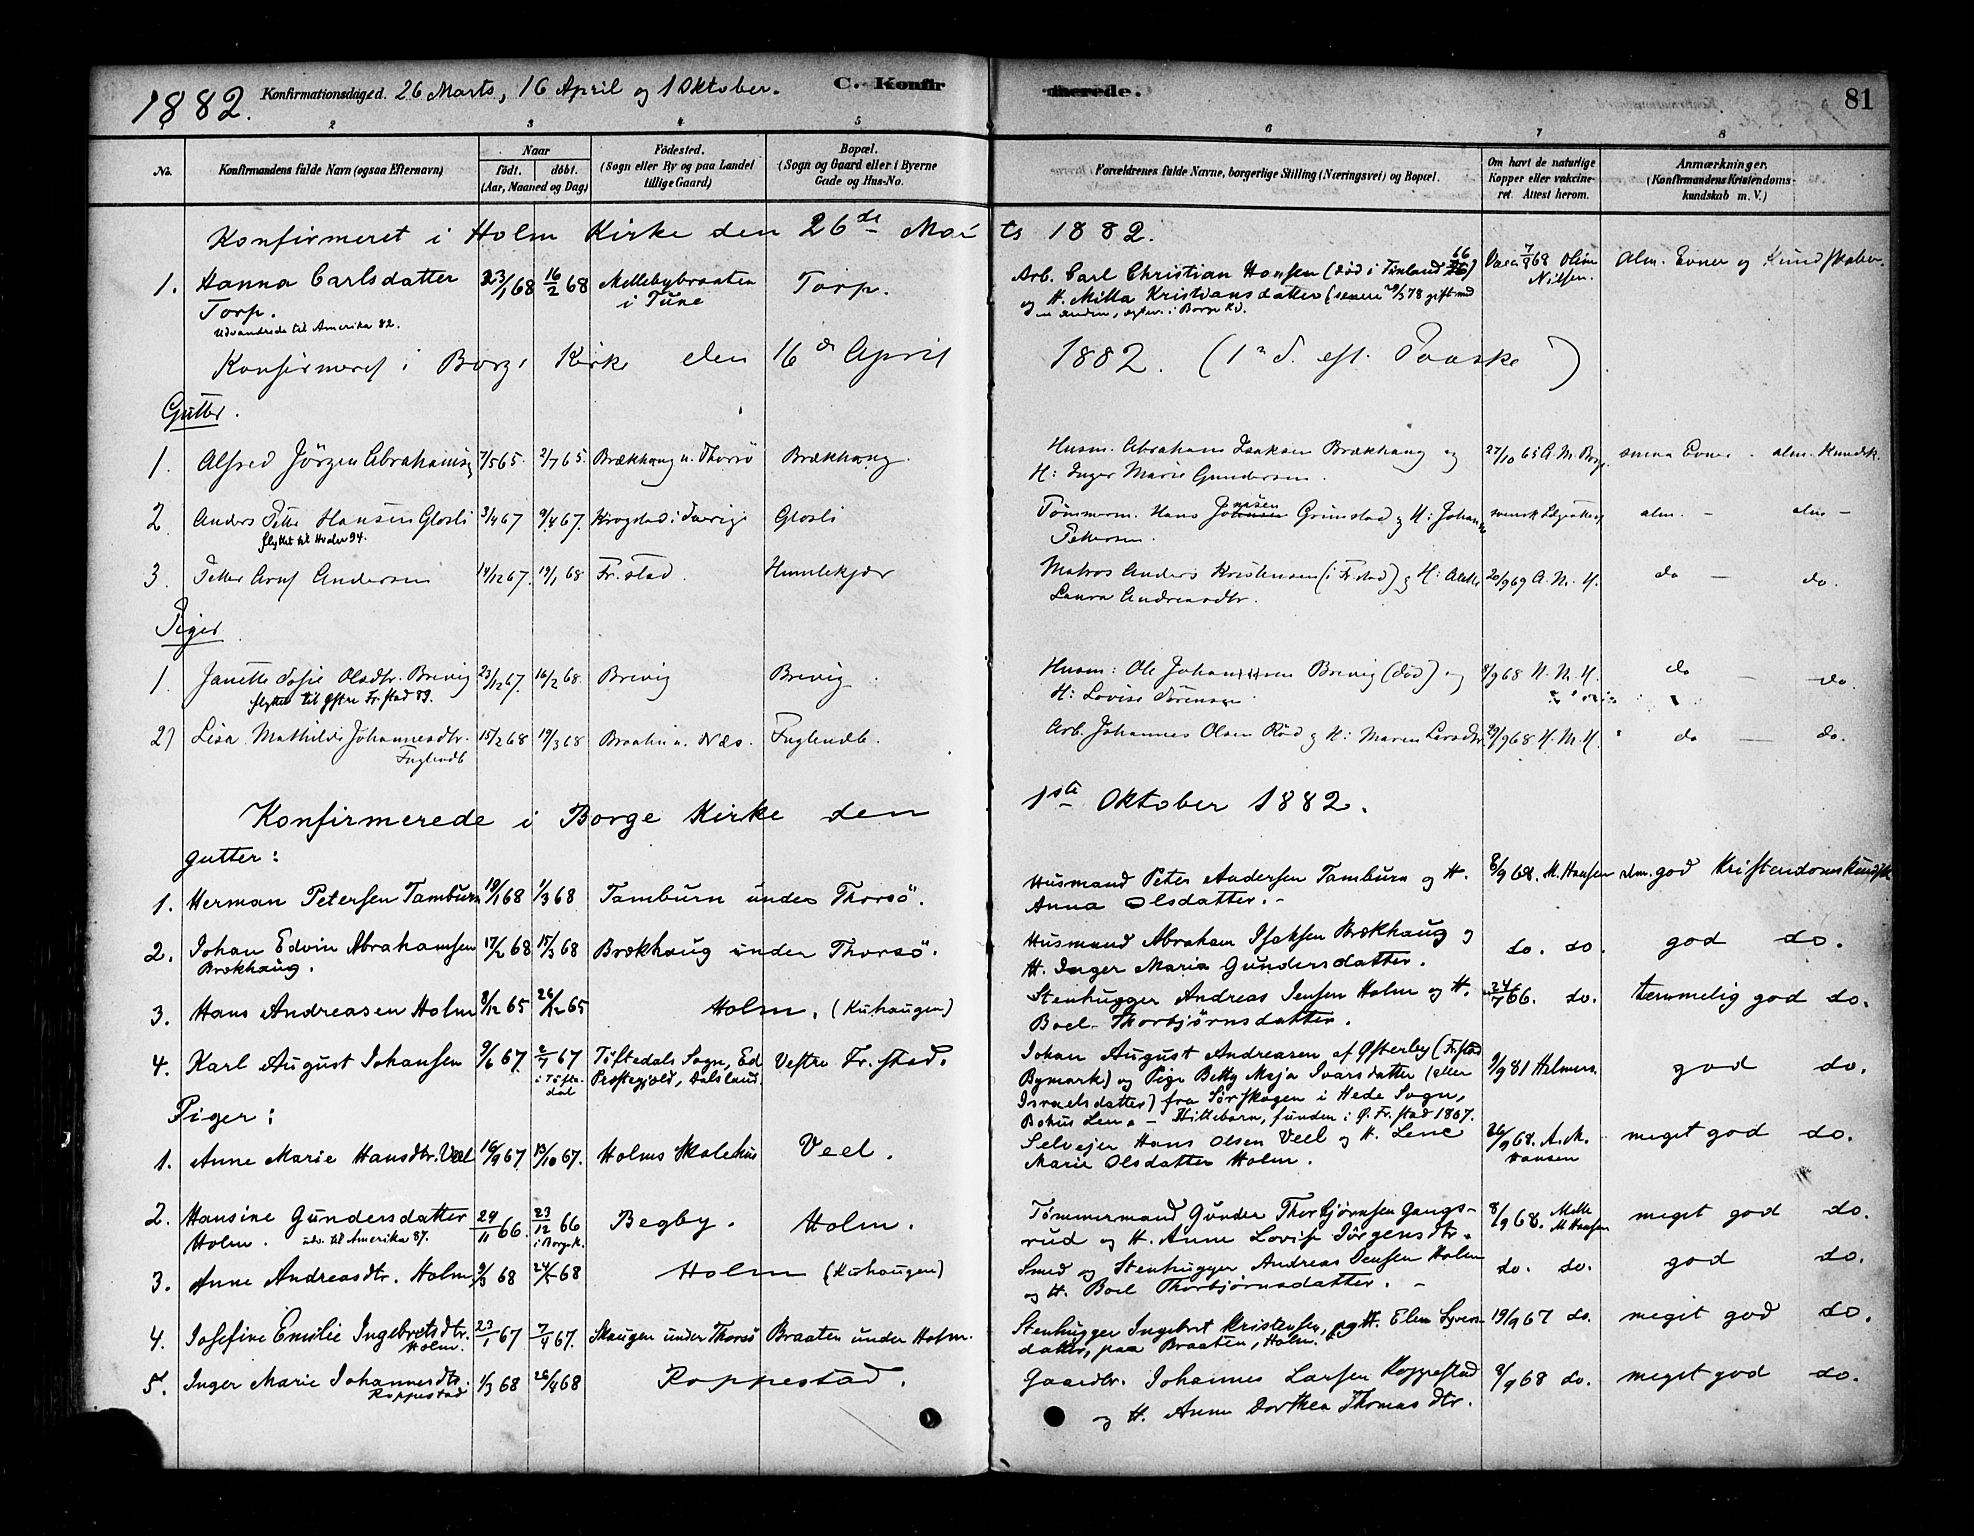 1882. Konfirmationsdage d. 26 Marts, 16 April og 1 Oktober. C. Konfirmerede. 81
2 3 4 5 6 7 8
No. Konfirmandens fulde Navn (ogsaa Efternavn) Naar født. døbt. (Aar, Maaned og Dag) Födested. (Sogn eller By og paa Landet tillige Gaard) Bopæl. (Sogn og Gaard eller i Byerne Gade og Hus-No. Forældrenes fulde Navne, borgerlige Stilling (Næringsvei) og Bopæl. Om havt de naturlige Kopper eller vakcineret. Attest herom. Anmærkninger. (Konfirmandens Kristendomskundskab m. V.)
Konfirmeret i Holm Kirke den 26de Marts 1882.
1. Hanna Carlsdatter 23/1 68 16/2 68 Mellebybraaten Torp. Arb. Carl Christian Hansen (død i Finland 66) Vacc. 7/9 68 Olim Alm. Evner og Kundskaber.
Torp. i Tune og H. Milla Kristiansdatter (senere 29/3 78 gift med Nilsen.
Udvandrede til Amerika 82. i Borge K).
Konfirmeret i Borge Kirke den 16de April 1882. (1ste S. eft. Paaske)
Gutter.
1. Alfred Jörgen Abrahamsen 7/5 65. 2/7 65. Brækhaug u. Thorsö Brækhaug. Husm. Abraham Isaksen Brækhaug og 27/10 65 A. M. Borge. smaa Evner - alm. Kundsk.
H: Inger Marie Gundersen.
2 Anders Petter Hansen Glosli 3/4 67 9/4 67. Krogstad i Sverige Glosli Tømmerm. Hans Grimstad og H: Johanne svensk alm. - alm -
flyttet til Hvaler 94. Pettersen.
3. Petter Arnt Andersen 14/12 67. 19/1 68 Fr.stad. Humlekjær Matros Anders Kristensen (i Fr.stad) og H: 20/9 69 A. M. H. do - do.
Laura Andreasdtr.
Piger
1. Janette Sofie Olsdtr. Brevig 23/12 67. 16/2 68 Brevig Brevig Husm: Ole Johannesen Brevig (død) og 8/9 68 H. M. H. do - do.
flyttet til Østre Fr.stad 89. H: Lovise Sørensen
2) Lisa Mathilde Johannesdtr. 15/2 68 19/3 68 Braaten u. Næs. Fuglendb. Arb. Johannes Olsen Röd og H: Maren Larsdtr 29/9 68 H. M. H. do — do.
Fuglendb
Konfirmerede i Borge Kirke den 1ste Oktober 1882.
gutter:
1. Herman Petersen Tamburn 19/1 68 1/3 68 Tamburn under Thorsö. Husmand Peter Andersen Tamburn og H. 8/9 68. M. Hansen alm. god Kristendomskundsk.
Anna Olsdatter. -
2. Johan Edvin Abrahamsen 17/2 68 15/3 68 Brækhaug under Thorsö. Husmand Abraham Isaksen Brækhaug og do. do. god do.
Brækhaug. H. Inger Maria Gundersdatter.
3. Hans Andreasen Holm 8/12 65 26/12 65 Holm. (Kuhaugen) Stenhugger Andreas Jensen Holm og H. 24/7 66. do. temmelig god do.
Boel Thorbjørnsdatter.
4. Karl August Johansen 9/6 67. 2/7 67 Töftedals Sogn, Ed Vestre Fr.stad. Johan August Andreasen af Østerby (Fr.stad 9/9 81 Halmers. god do.
i Töftedal Prestegjeld, Dalsland. Bymark) og Pige Betty Maja Ivarsdatter (eller
Israelsdatter) fra Sörskogen i Hede Sogn,
Bohus Len - Hittebarn, funden i Ø. Fr.stad 1867.
Piger:
1. Anne Marie Hansdtr. Veel 16/9 67. 13/10 67. Holms Skolehus Veel. Selveier Hans Olsen Veel og H. Lene 26/9 68. A. M. Hansen meget god do.
Marie Olsdatter Holm.
2. Hansine Gundersdatter 24/11 66. 23/12 66 Begby. Holm. Tömmermand Gunder Thorbjørnsen Gangs- 8/9 68. Melle M Hansen meget god do.
Holm. udv. til Amerika 87. i Borge K. rud og H. Anne Lovise Jörgensdtr.
3. Anne Andreasdtr. Holm 9/3 68 24/5 68 Holm (Kuhaugen) Smed og Stenhugger Andreas Jensen Holm do. do. god do.
og H. Boel Thorbjørnsdatter. -
4. Josefine Emilie Ingebretsdtr. 23/1 67 7/4 67. Skaugen under Thorsö Braaten under Holm. Stenhugger Ingebret Kristensen, og H. Elen Syvers- 19/9 67 do. meget god do.
Holm. datter, paa Braaten, Holm.
5. Inger Marie Johannesdtr. 1/3 68 26/4 68 Roppestad. Gaardbr. Johannes Larsen Roppestad 8/9 68 do. meget god do.
Roppestad og H. Anne Dorthea Thomasdtr.